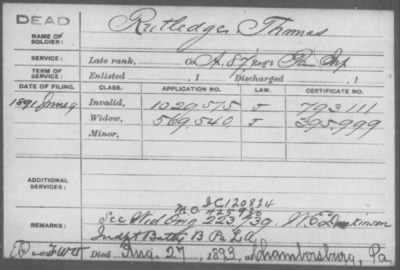 DEAD
NAME OF SOLDIER: Rutledge, Thomas
SERVICE: Late rank, Co A, 87 Reg't Pa Inf
TERM OF SERVICE: Enlisted , 1 Discharged , 1
DATE OF FILING. CLASS. APPLICATION NO. LAW. CERTIFICATE NO.
1891 June 9 Invalid, 1029,575 J 793111
Widow, 569,540 J 395,999
Minor,
ADDITIONAL SERVICES:
I C 120824
M.O. 725920
REMARKS: See Wid Orig 223,739
Indpt Batty B Pa L A
Died Aug. 27, 1893, at Chambersburg, Pa